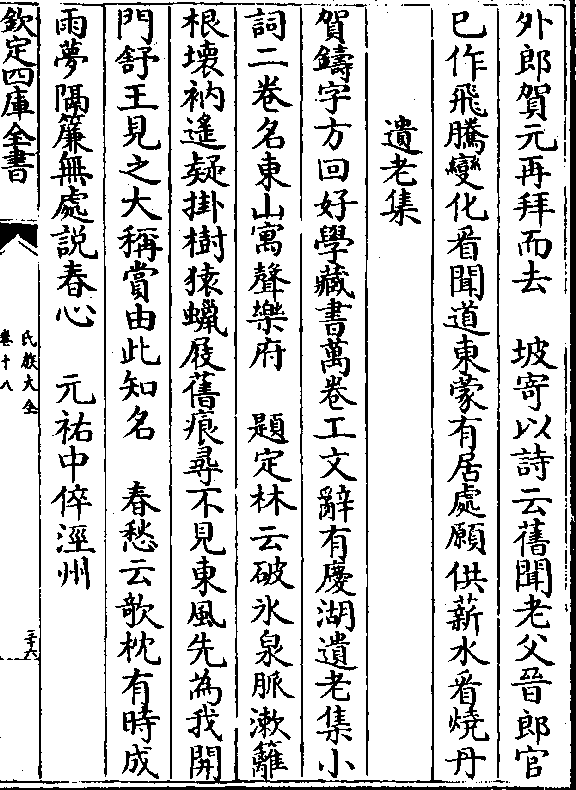 外郎賀元再拜而去　坡寄以詩云舊聞老父晉郎官
已作飛騰變化看聞道東蒙有居處願供薪水看燒丹
遺老集
賀鑄字方回好學藏書萬卷工文辭有慶湖遺老集小
詞二卷名東山寓聲樂府　題定林云破氷泉脈漱籬
根壊衲遙疑掛樹猿蠟屐舊痕尋不見東風先為我開
門舒王見之大稱賞由此知名　春愁云歌枕有時成
雨夢隔簾無處説春心　元祐中倅涇州
欽定四庫全書
氏族大全
卷十八
三十六